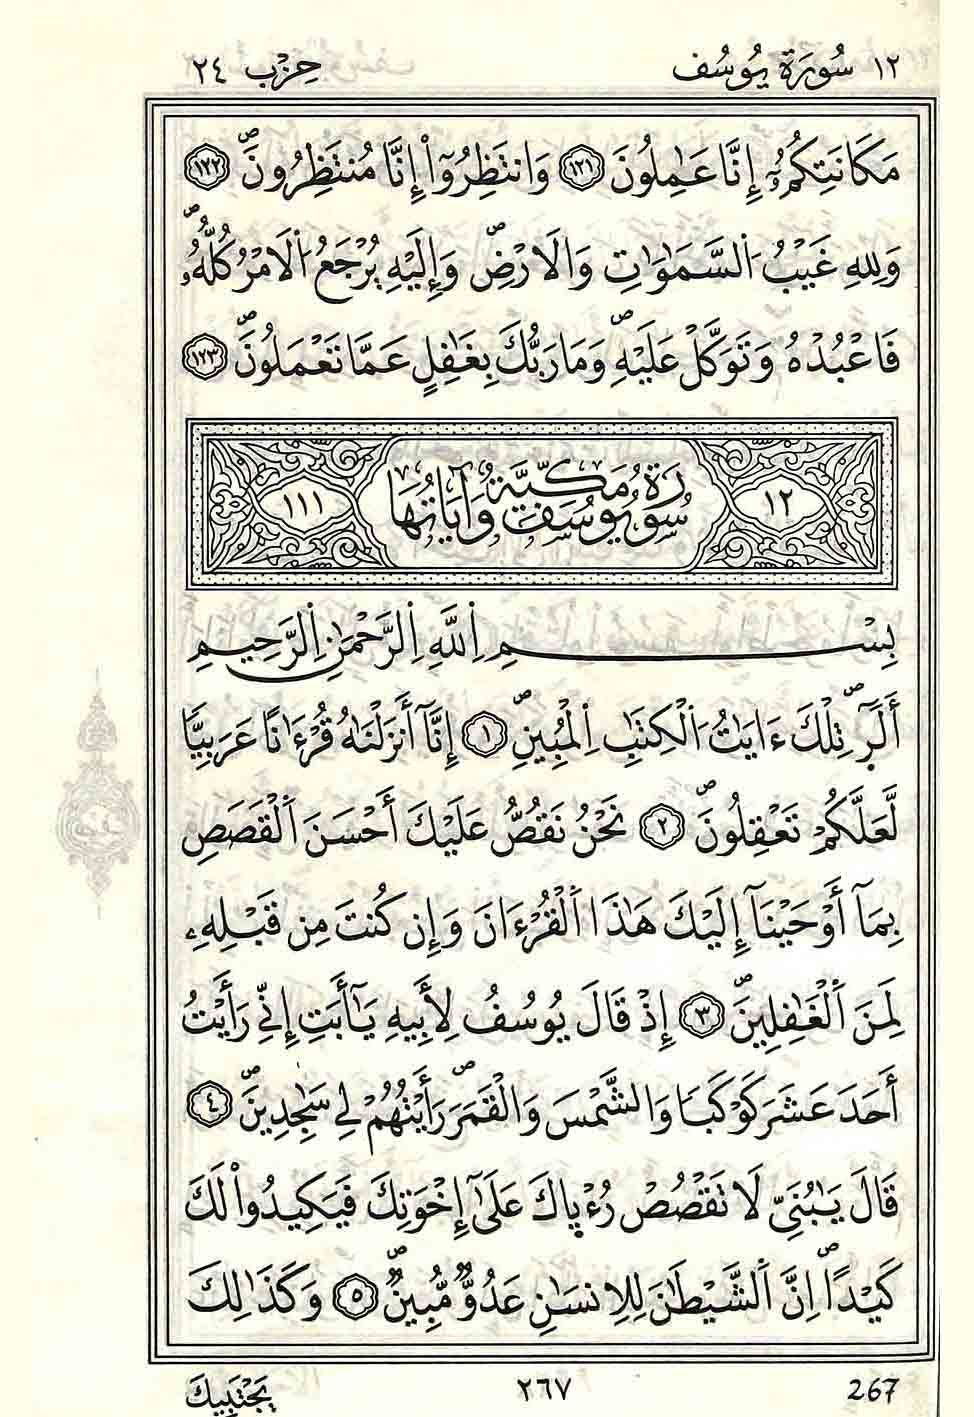 ١٢ سُورَةُ يُوسُف حِزْب ٢٤
مَكَانَتِكُمُۥٓ إِنَّا عَٰمِلُونَ ١٢١ وَانتَظِرُوٓاْ إِنَّا مُنتَظِرُونَ ١٢٢
وَلِلهِ غَيْبُ اُ۬لسَّمَٰوَٰتِ وَالَارْضِ وَإِلَيْهِ يُرْجَعُ اُ۬لَامْرُ كُلُّهُۥ
فَاعْبُدْهُ وَتَوَكَّلْ عَلَيْهِ وَمَا رَبُّكَ بِغَٰفِلٍ عَمَّا تَعْمَلُونَ ١٢٣
١٢ سُورَةُ يُوسُفَ مَكِّيَّة وَآيَاتُهَا ١١١
بِسْمِ اِ۬للَّهِ اِ۬لرَّحْمَٰنِ اِ۬لرَّحِيمِ
أَلَٓر تِلْكَ ءَايَٰتُ اُ۬لْكِتَٰبِ اِ۬لْمُبِينِ ١ إِنَّآ أَنزَلْنَٰهُ قُرْءَٰناً عَرَبِيّاً
لَّعَلَّكُمْ تَعْقِلُونَ ٢ نَحْنُ نَقُصُّ عَلَيْكَ أَحْسَنَ اَ۬لْقَصَصِ
بِمَآ أَوْحَيْنَآ إِلَيْكَ هَٰذَا اَ۬لْقُرْءَانَ وَإِن كُنتَ مِن قَبْلِهِۦ
لَمِنَ اَ۬لْغَٰفِلِينَ ٣ إِذْ قَالَ يُوسُفُ لِأَبِيهِ يَٰٓأَبَتِ إِنِّي رَأَيْتُ
أَحَدَ عَشَرَ كَوْكَباً وَالشَّمْسَ وَالْقَمَرَ رَأَيْتُهُمْ لِي سَٰجِدِينَ ٤
قَالَ يَٰبُنَيِّ لَا تَقْصُصْ رُءْيٰاكَ عَلَىٰٓ إِخْوَتِكَ فَيَكِيدُواْ لَكَ
كَيْداً اِنَّ اَ۬لشَّيْطَٰنَ لِلِانسَٰنِ عَدُوٌّ مُّبِينٌ ٥ وَكَذَٰلِكَ
يَجْتَبِيكَ ٢٦٧ 267